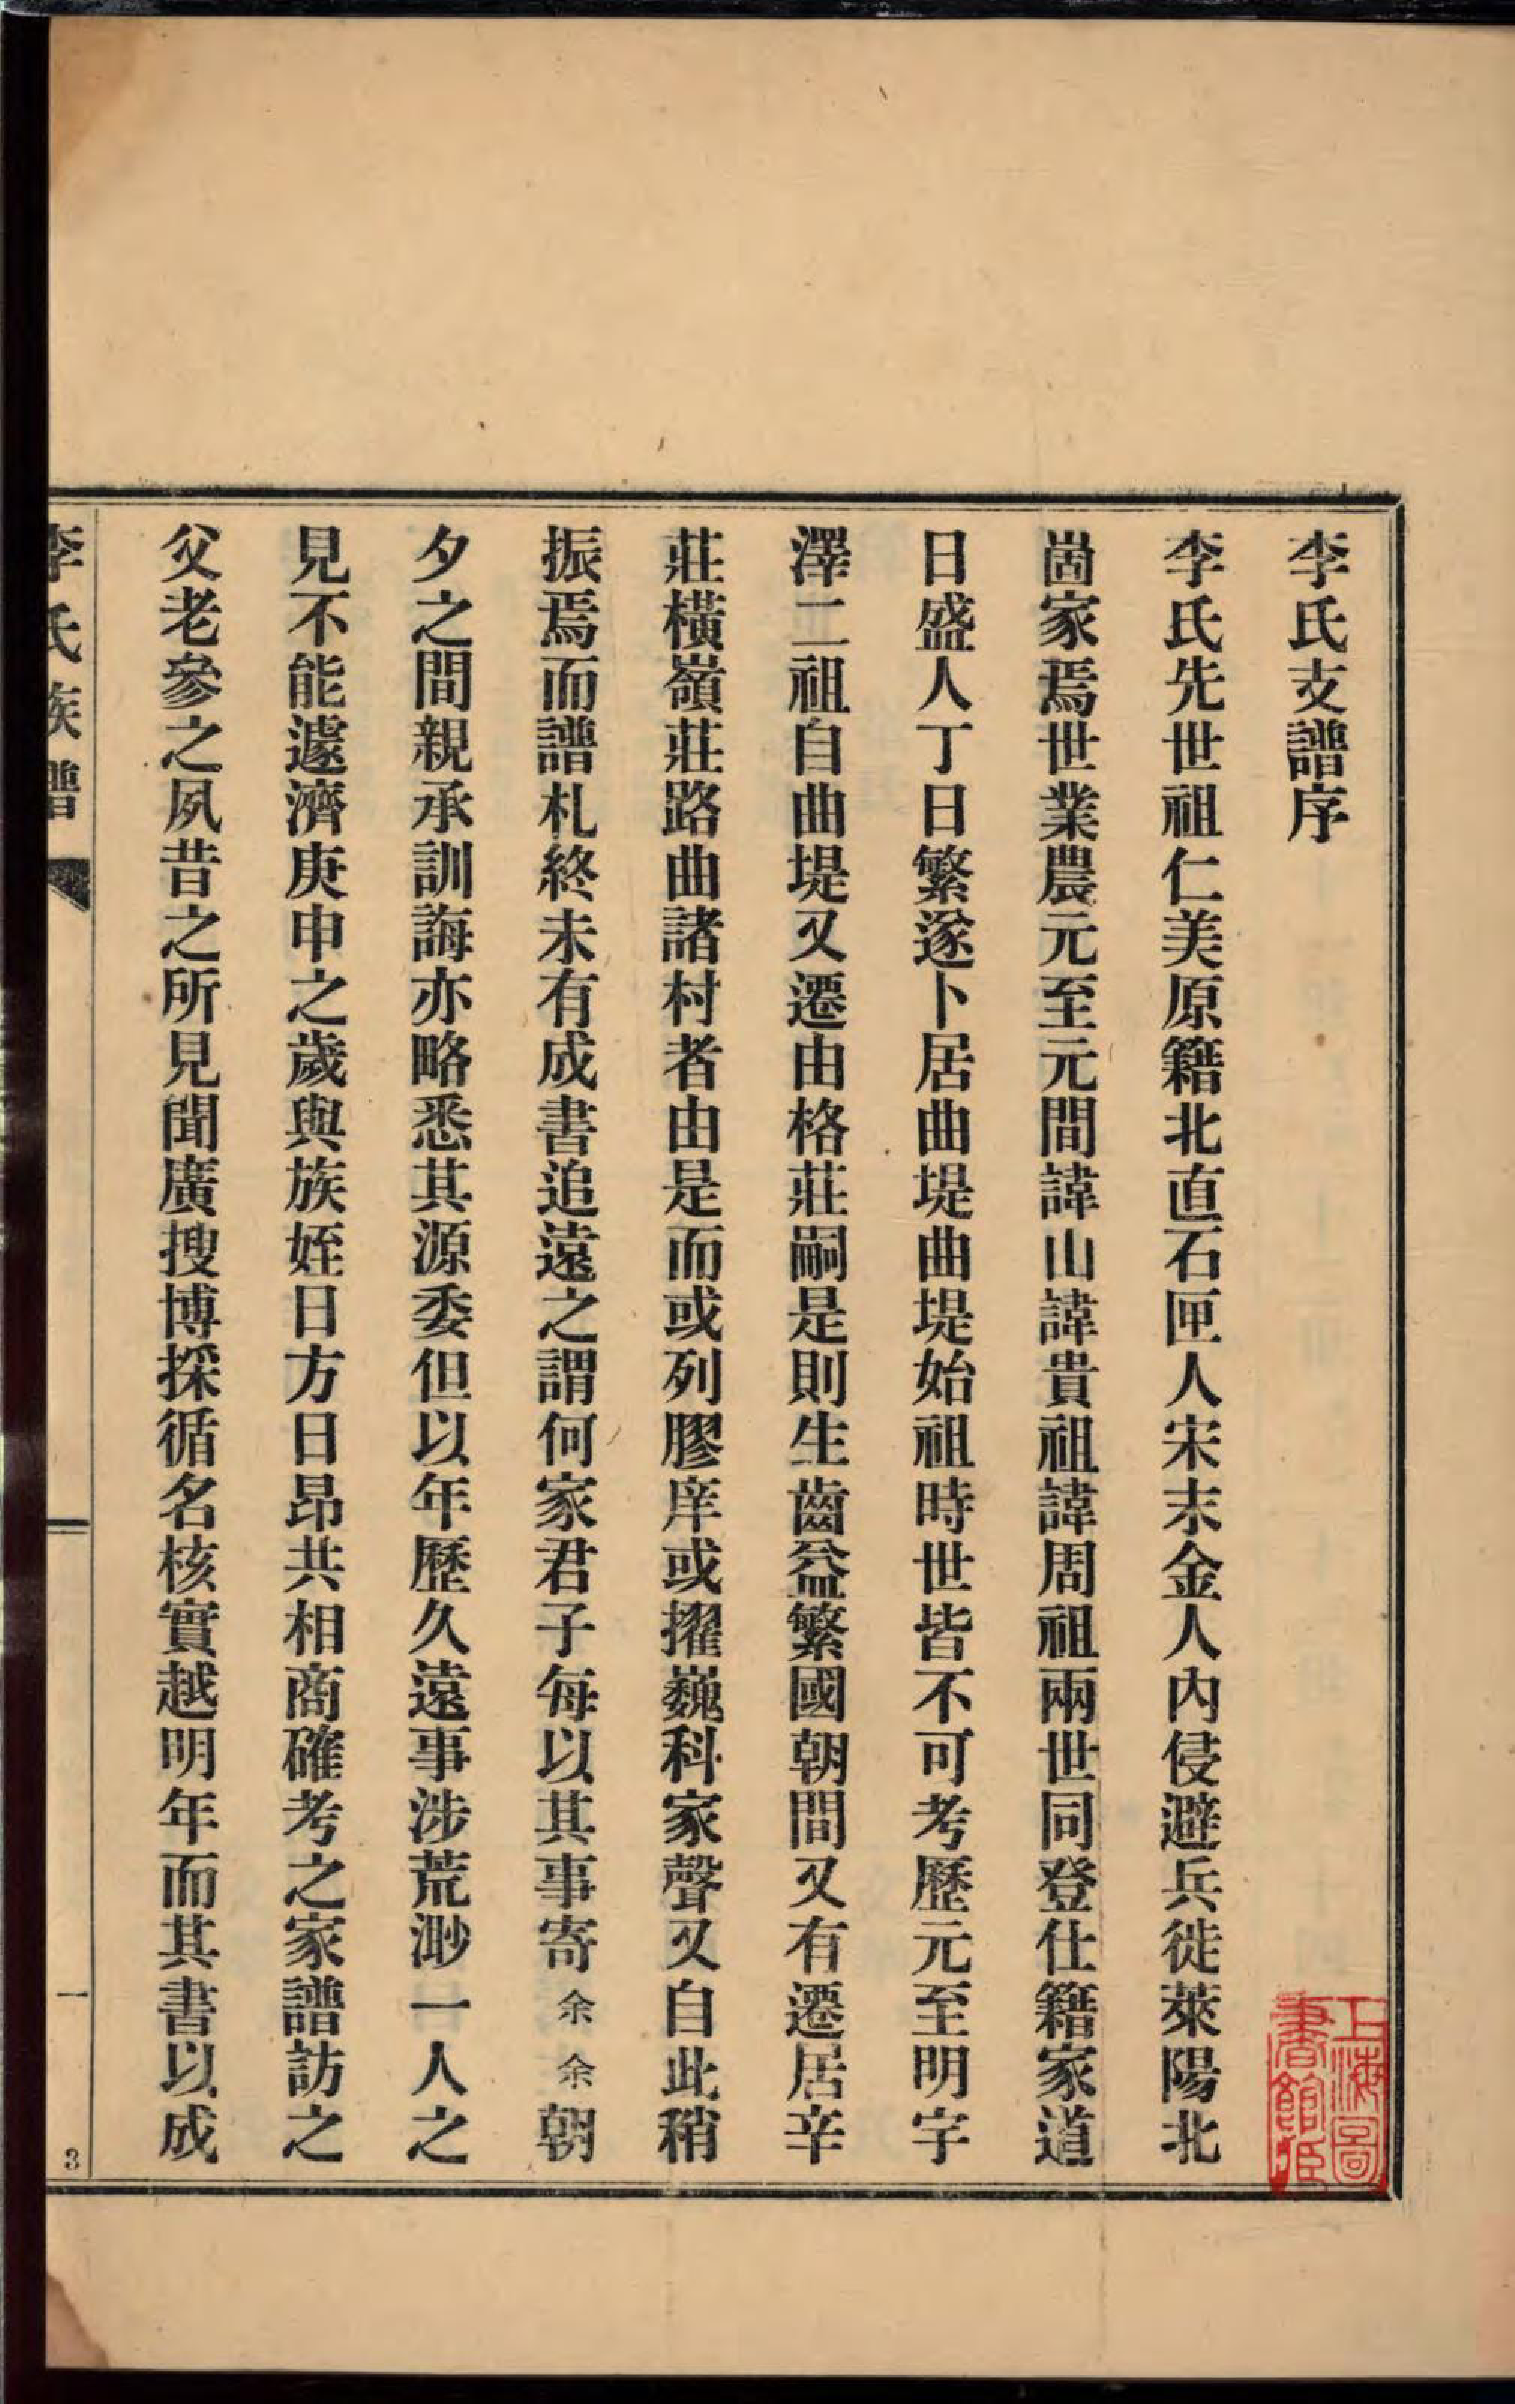 李氏支譜序
李氏先世祖仁美原籍北直石匣人宋末金人內侵避兵徙萊陽北
崮家焉世業農元至元間諱山諱貴祖諱周祖兩世同登仕籍家道
日盛人丁日繁遂卜居曲堤曲堤始祖時世皆不可考歷元至明字
澤二祖自曲堤又遷由格莊嗣是則生齒益繁國朝間又有遷居辛
莊橫嶺莊路曲諸村者由是而或列膠庠或擢巍科家聲又自此稍
振焉而譜札終未有成書追遠之謂何家君子每以其事寄余余朝
夕之間親承訓誨亦略悉其源委但以年歷久遠事涉荒渺一人之
見不能遽濟庚申之歲與族姪日方日昂共相商確考之家譜訪之
父老參之夙昔之所見聞廣搜博採循名核實越明年而其書以成
李氏族譜
一
3
上海圖
書館藏